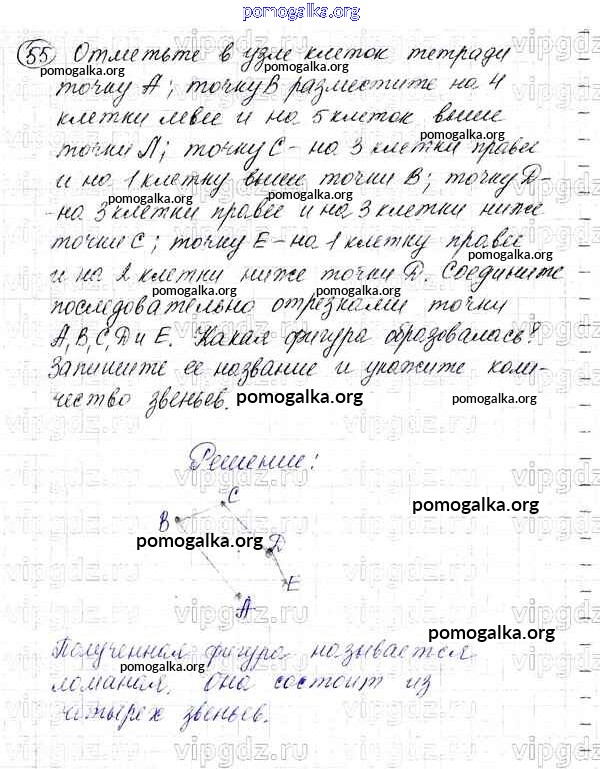 pomogalka.org
55 Отметьте в узле клеток тетради
pomogalka.org pomogalka.org
точку А; точку В разместите на 4
клетки левее и на 5 клеток выше
pomogalka.org pomogalka.org
точки А; точку С - на 3 клетки правее
и на 1 клетку выше точки В; точку D-
pomogalka.org pomogalka.org
-на 3 клетки правее и на 3 клетки ниже
точки С; точку Е - на 1 клетку правее
pomogalka.org pomogalka.org
и на 2 клетки ниже точки D. Соедините
последовательно отрезками точки
pomogalka.org pomogalka.org
А, В, С, D и Е. Какая фигура образовалась?
Запишите ее название и укажите коли-
чество звеньев.
pomogalka.org pomogalka.org pomogalka.org
Решение:
C
pomogalka.org
B
pomogalka.org
D
E
A
pomogalka.org
Полученная фигура называется
pomogalka.org pomogalka.org
ломаная. Она состоит из
четырех звеньев.
vipgdz.ru